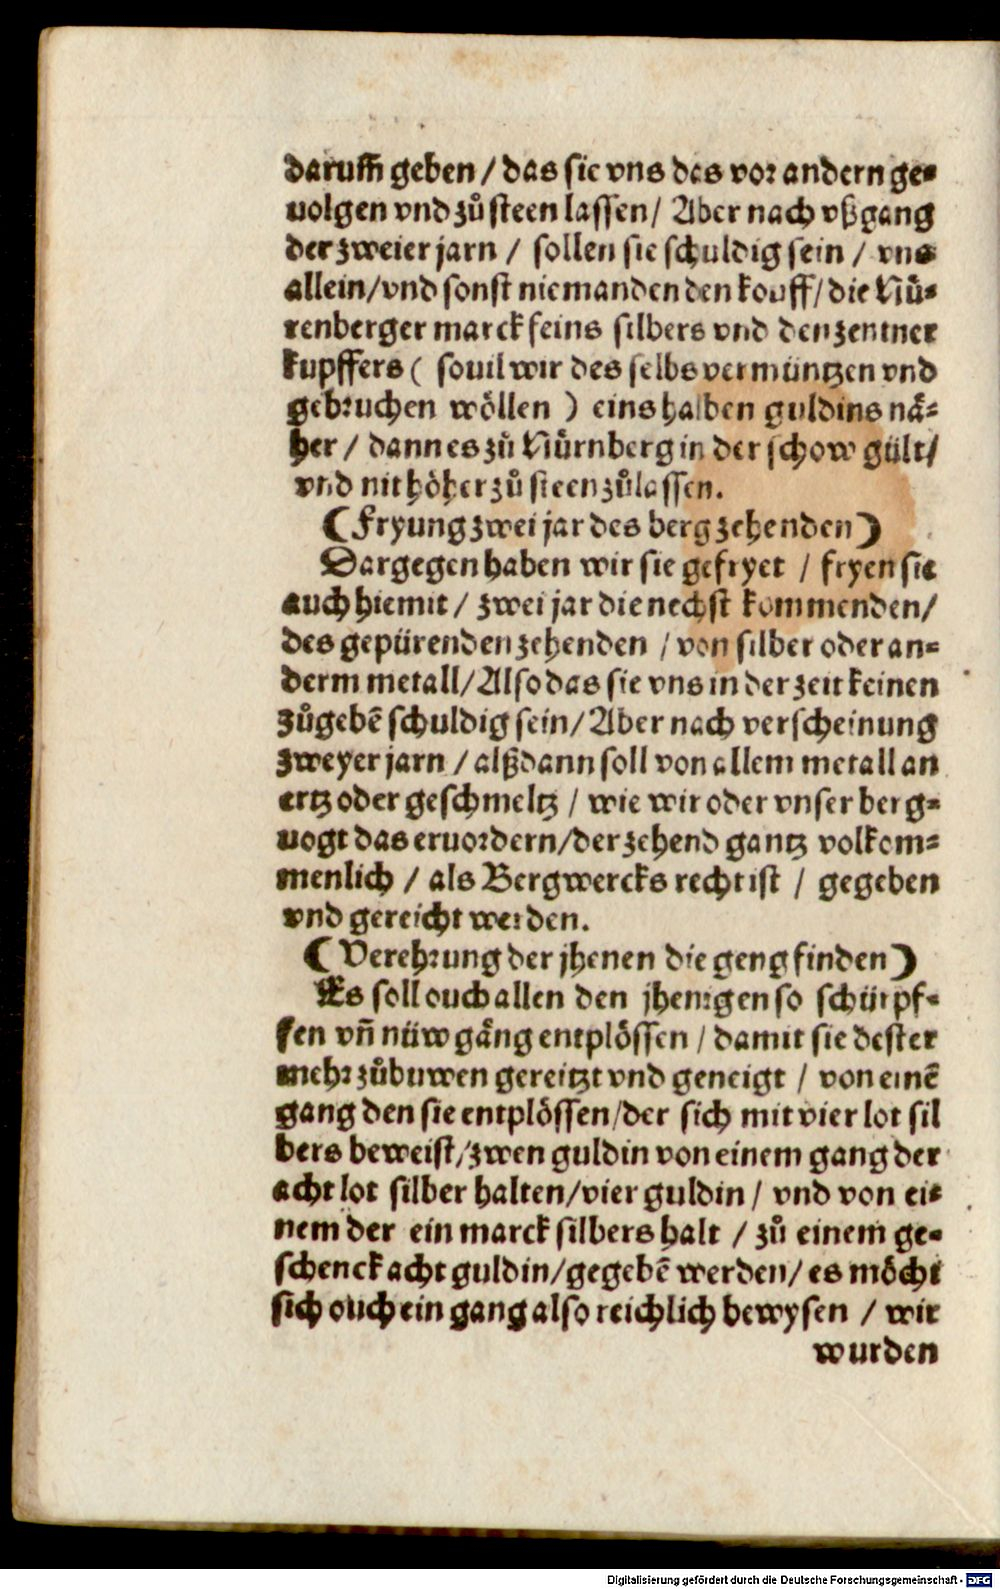 darum̄ geben / das sie vns das vor andern ge-
uolgen vnd zůsteen lassen / Aber nach vßgang
der zweier jarn / sollen sie schuldig sein / vns
allein / vnd sonst niemanden den kouff / die Nů-
renberger marck feins silbers vnd den zentner
kupffers ( souil wir des selbs vermüntzen vnd
gebruchen wöllen ) eins halben guldins nä-
her / dann es zů Nůrnberg in der schow gült /
vnd nit höher zů steen zůlassen.
( Fryung zwei jar des berg zehenden )
Dargegen haben wir sie gefryet / fryen sie
auch hiemit / zwei jar die nechst kommenden /
des gepürenden zehenden / von silber oder an-
derm metall / Also das sie vns in der zeit keinen
zůgebē schuldig sein / Aber nach verscheinung
zweyer jarn / alßdann soll von allem metall an
ertz oder geschmeltz / wie wir oder vnser berg-
uogt das eruordern / der zehend gantz volkom-
menlich / als Bergwercks recht ist / gegeben
vnd gereicht werden.
( Verehrung der jhenen die geng finden )
Es soll ouch allen den jhenigen so schürpf-
fen vn̄ nüw gäng entplössen / damit sie dester
mehr zůbuwen gereitzt vnd geneigt / von einē
gang den sie entplössen / der sich mit vier lot sil
bers beweist / zwen guldin von einem gang der
acht lot silber halten / vier guldin / vnd von ei-
nem der ein marck silbers halt / zů einem ge-
schenck acht guldin / gegebē werden / es möcht
sich ouch ein gang also reichlich bewysen / wir
wurden
Digitalisierung gefördert durch die Deutsche Forschungsgemeinschaft - DFG